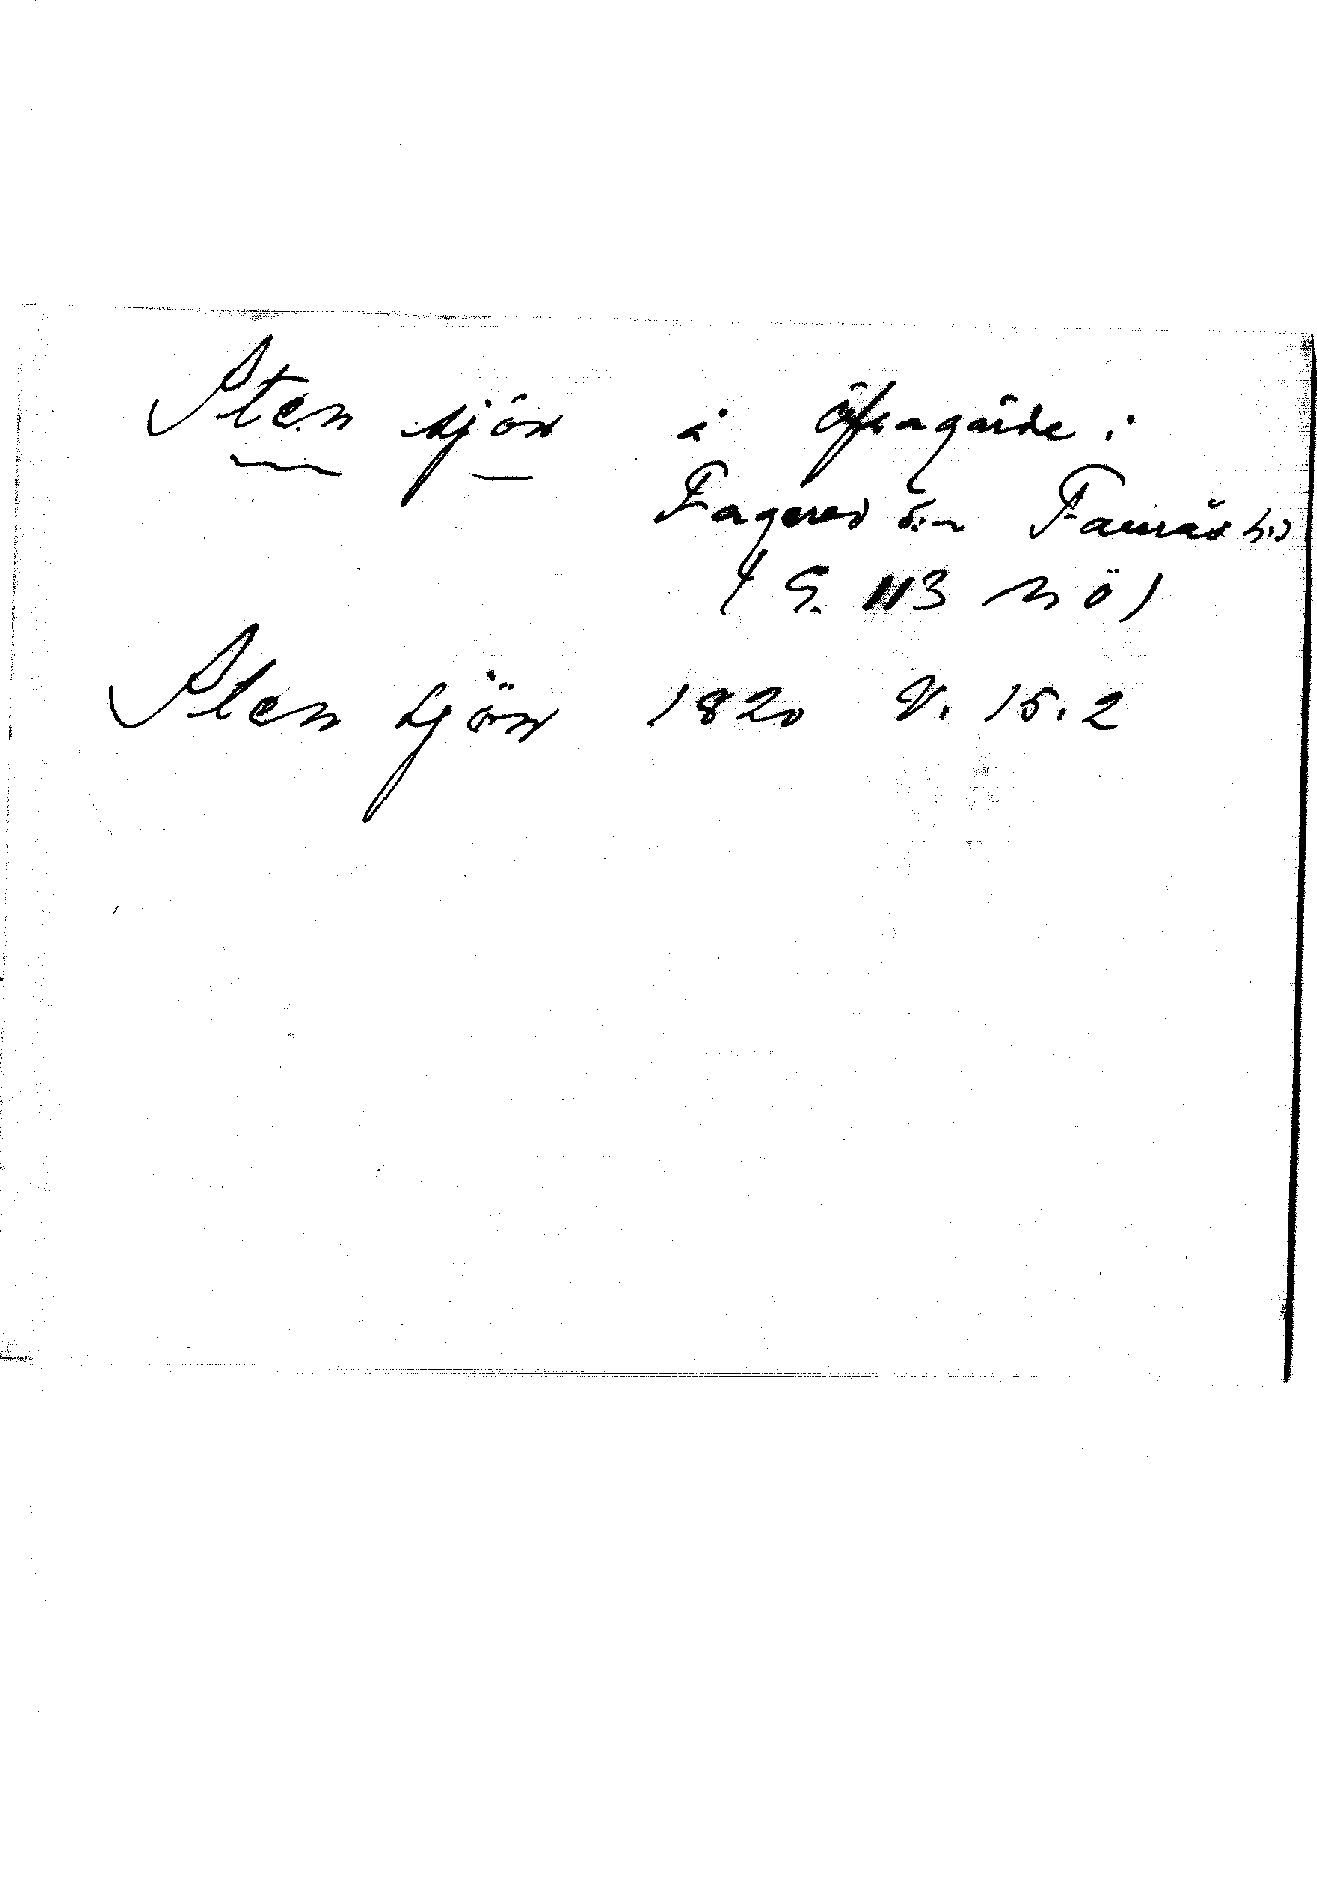 Sten sjön å Öfragärde i
Fagered s:n Faurås hd
( G. 113 NÖ )
Sten sjön 1820 V. 15.2